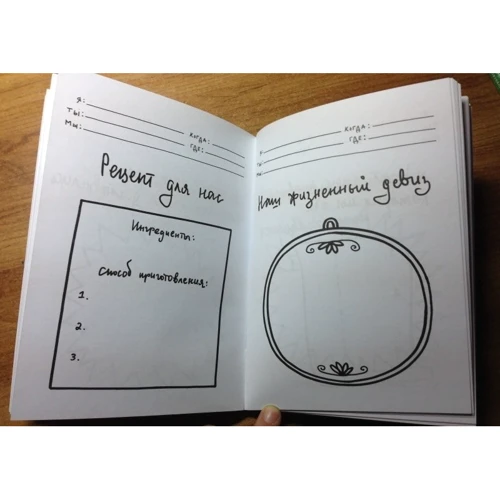 Я:
ТЫ:
МЫ:
КОГДА:
ГДЕ:
Рецепт для нас
Ингредиенты:
способ приготовления:
1.
2.
3.
КОГДА:
ГДЕ:
Наш жизненный девиз